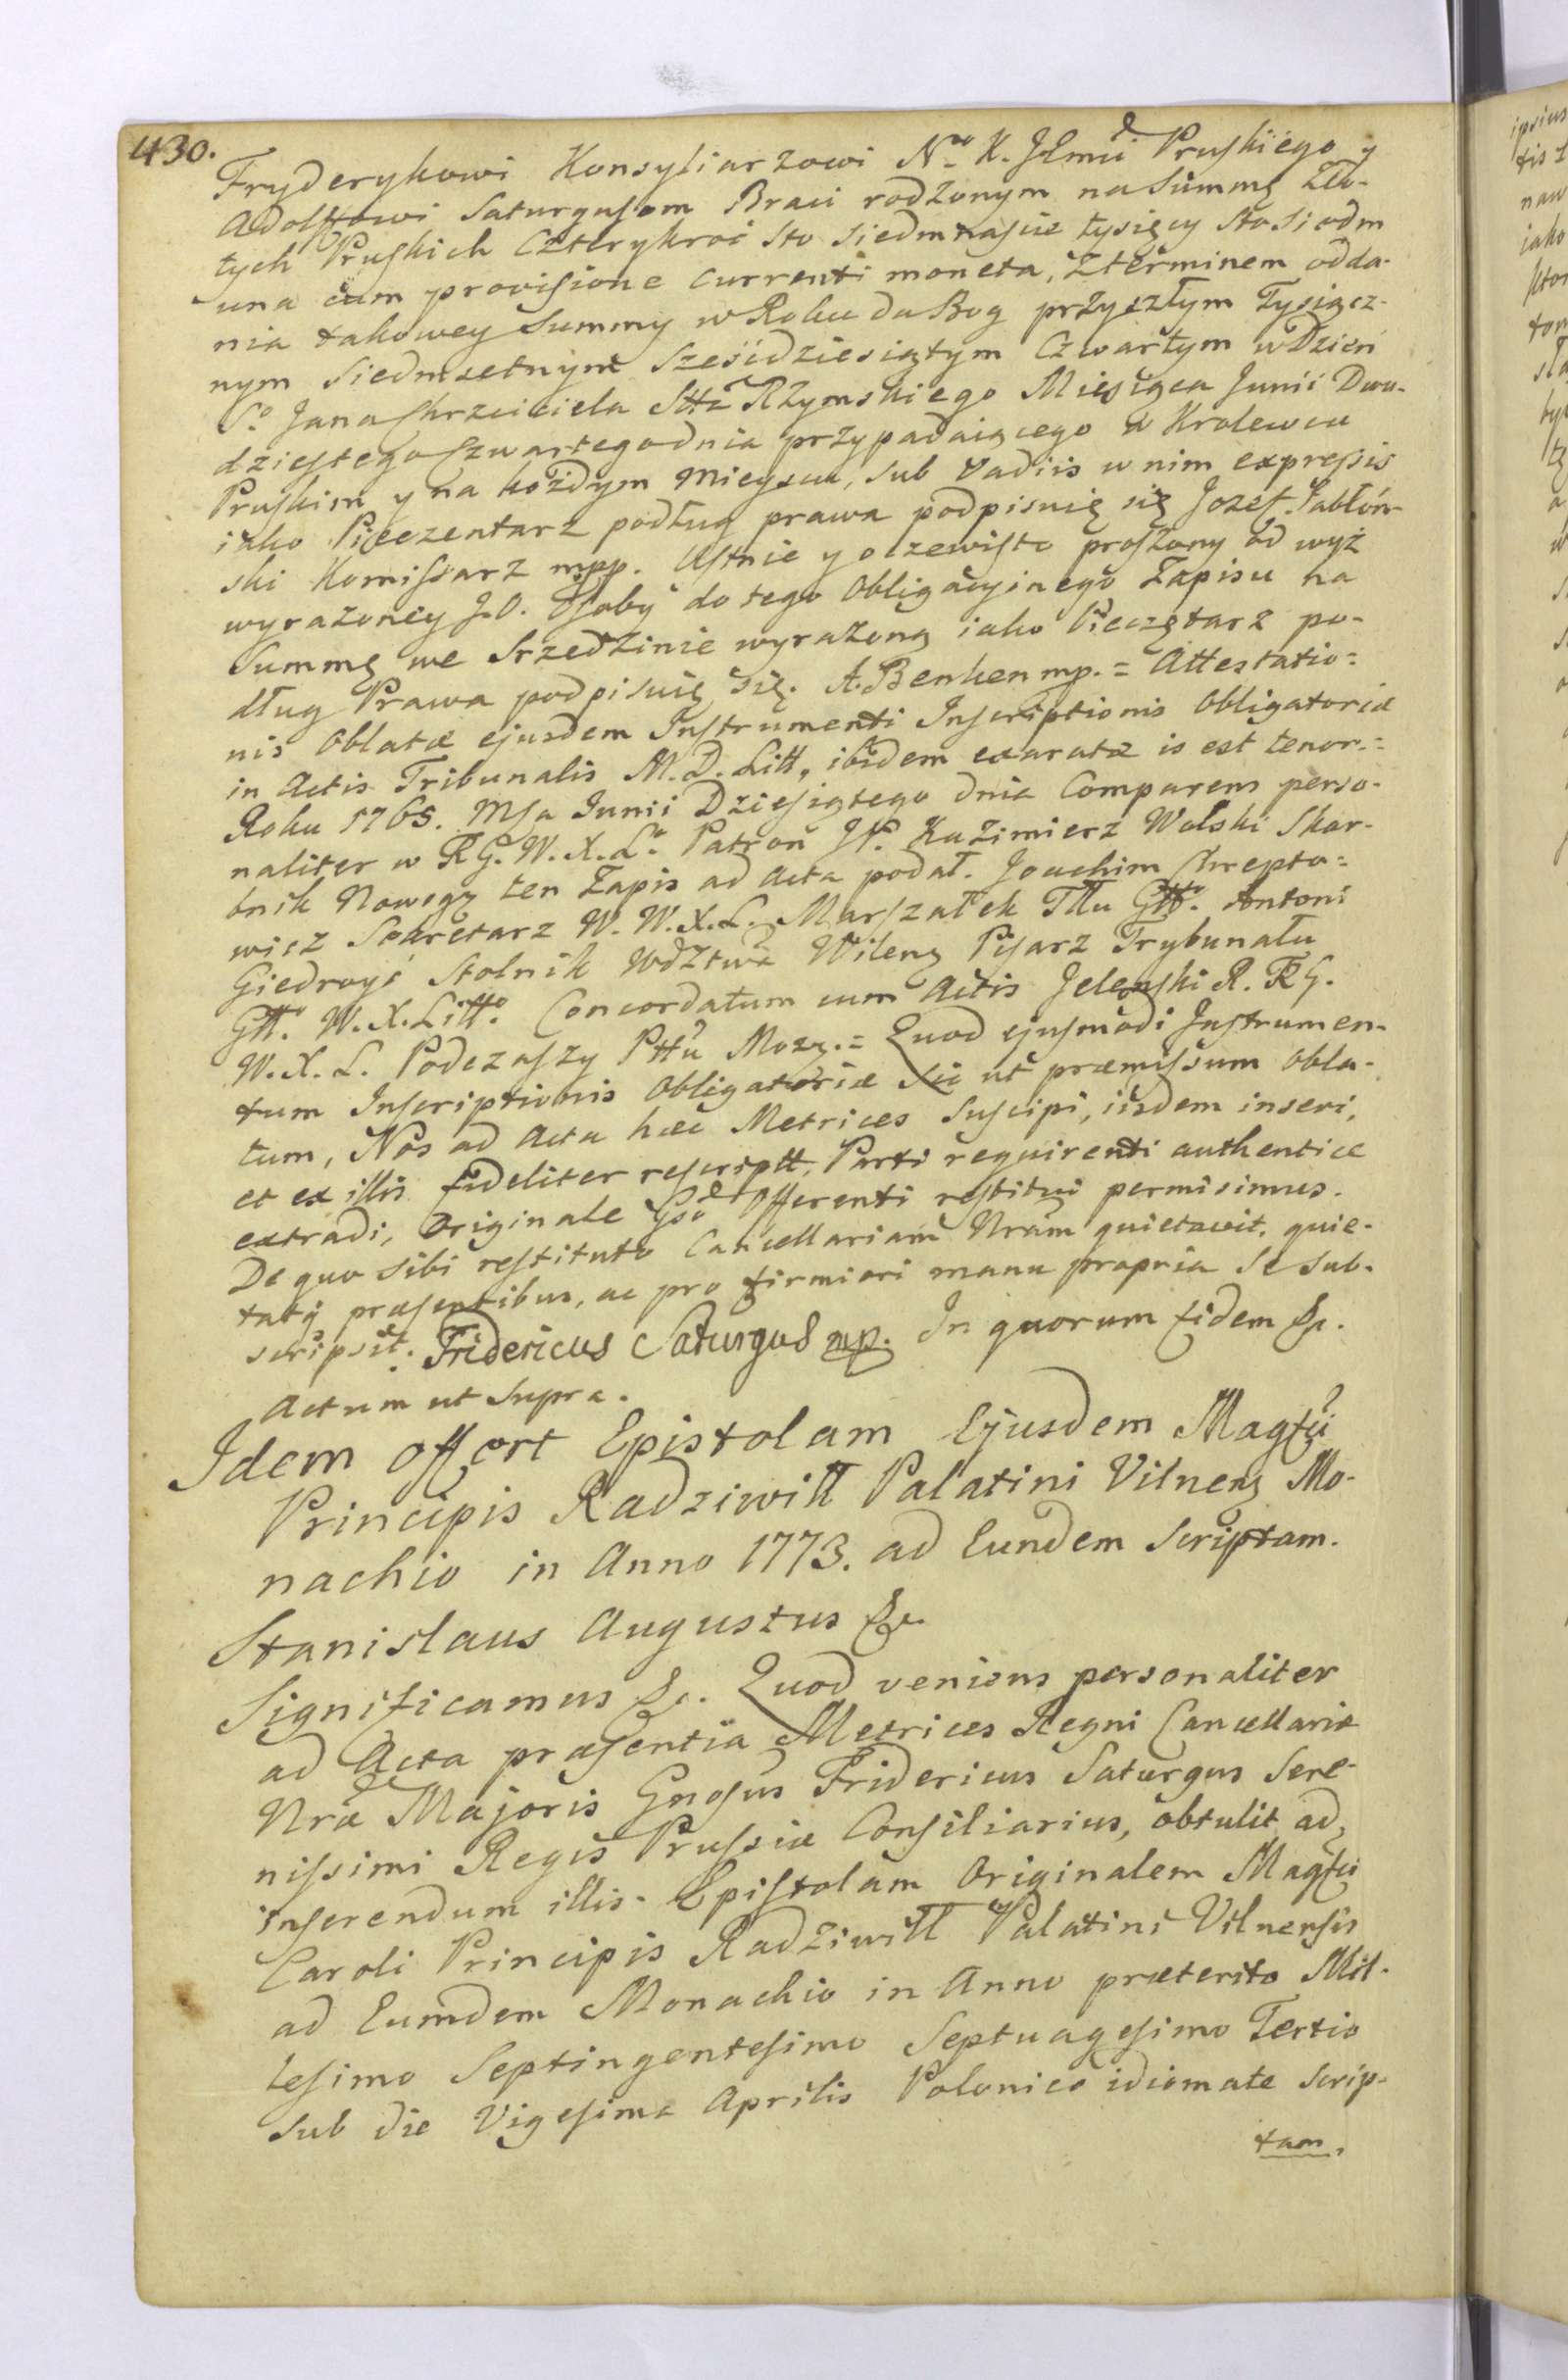 430.
Fryderykowi Konsyliarzowi N.ro K. JEmci Pruskiego y
Adolffowi Saturgusom Braci rodzonym na Summę Zło-
tych Pruskich Czterykroć Sto Siedmnaście tysięcy Sto Siedm
una cum provisione currenti moneta, z terminem odda-
nia takowey Summy w Roku da Bog przyszłym Tysiącz-
nym Siedmsetnym Sześćdziesiątym Czwartym w Dzień
S.o Jana Chrzciciela Stta Rzymskiego Miesiąca Junii Dwu-
dziestego Czwartego dnia przypadaiącego w Krolewcu
Pruskim y na każdym mieyscu, sub Vadiis w nim expressis
iako Pieczentarz podług prawa podpisuię się Jozef Jabłoń-
ski Komissarz mpp. Ustnie y oczewisto proszony od wyż
wyrażoney J.O. Osoby do tego Obligacyinego Zapisu na
Summę we Srzedzinie wyrażoną iako Pieczętarz po-
dług Prawa podpisuię się. A. Benken mp. = Attestatio=
nis Oblatæ ejusdem Instrumenti Inscriptionis Obligatoriæ
in Actis Tribunalis M. D. Litt, ibidem exaratæ is est tenor.=
Roku 1765. Msa Junii Dziesiątego dnia Comparens perso-
naliter w R G. W. X. L.o Patron JP. Kazimierz Wolski Skar-
bnik Nowogz ten Zapis ad Acta podał. Joachim Chrepto=
wicz Sekretarz W. W. X. L. Marszałek Tttu Gtt.o Antoni
Giedroyć Stolnik Wdztwa Wileng Pisarz Trybunału
Gtt.o W. X. Litt.o Concordatum cum Actis Jelenski R. R G.
W. X. L. Podczaszy Pttu Mozy.= Quod ejusmodi Instrumen-
tum Inscriptionis Obligatoriæ Sic ut præmissum obla-
tum, Nos ad Acta hæc Metrices Suscipi, iisdem inseri,
et ex illis fideliter rescriptt, Parti requirenti authentice
extradi, Originale Gso Offerenti restitui permisimus.
De quo sibi restituto Cancellariam Nram quietavit, quie-
tatq præsentibus, ac pro firmiori manu propria Se sub-
scripsit. Fridericus Saturgus mp. In quorum fidem &c.
Actum ut Supra.
Idem offert Epistolam Ejusdem Magfci
Principis Radziwiłł Palatini Vilneng Mo-
nachio in Anno 1773. ad Eundem Scriptam.
Stanislaus Augustus &c.
Significamus &c. Quod veniens personaliter
ad Acta præsentia Metrices Regni Cancellariæ
Nræ Majoris Gnosus Fridericus Saturgus Sere-
nissimi Regis Prussiæ Consiliarius, obtulit ad
inserendum illis. Epistolam Originalem Magfci
Caroli Principis Radziwiłł Palatini Vilnensis
ad Eumdem Monachio in Anno præterito Mil-
lesimo Septingentesimo Septuagesimo Tertio
Sub die Vigesima Aprilis Polonico idiomate Scrip-
tam,